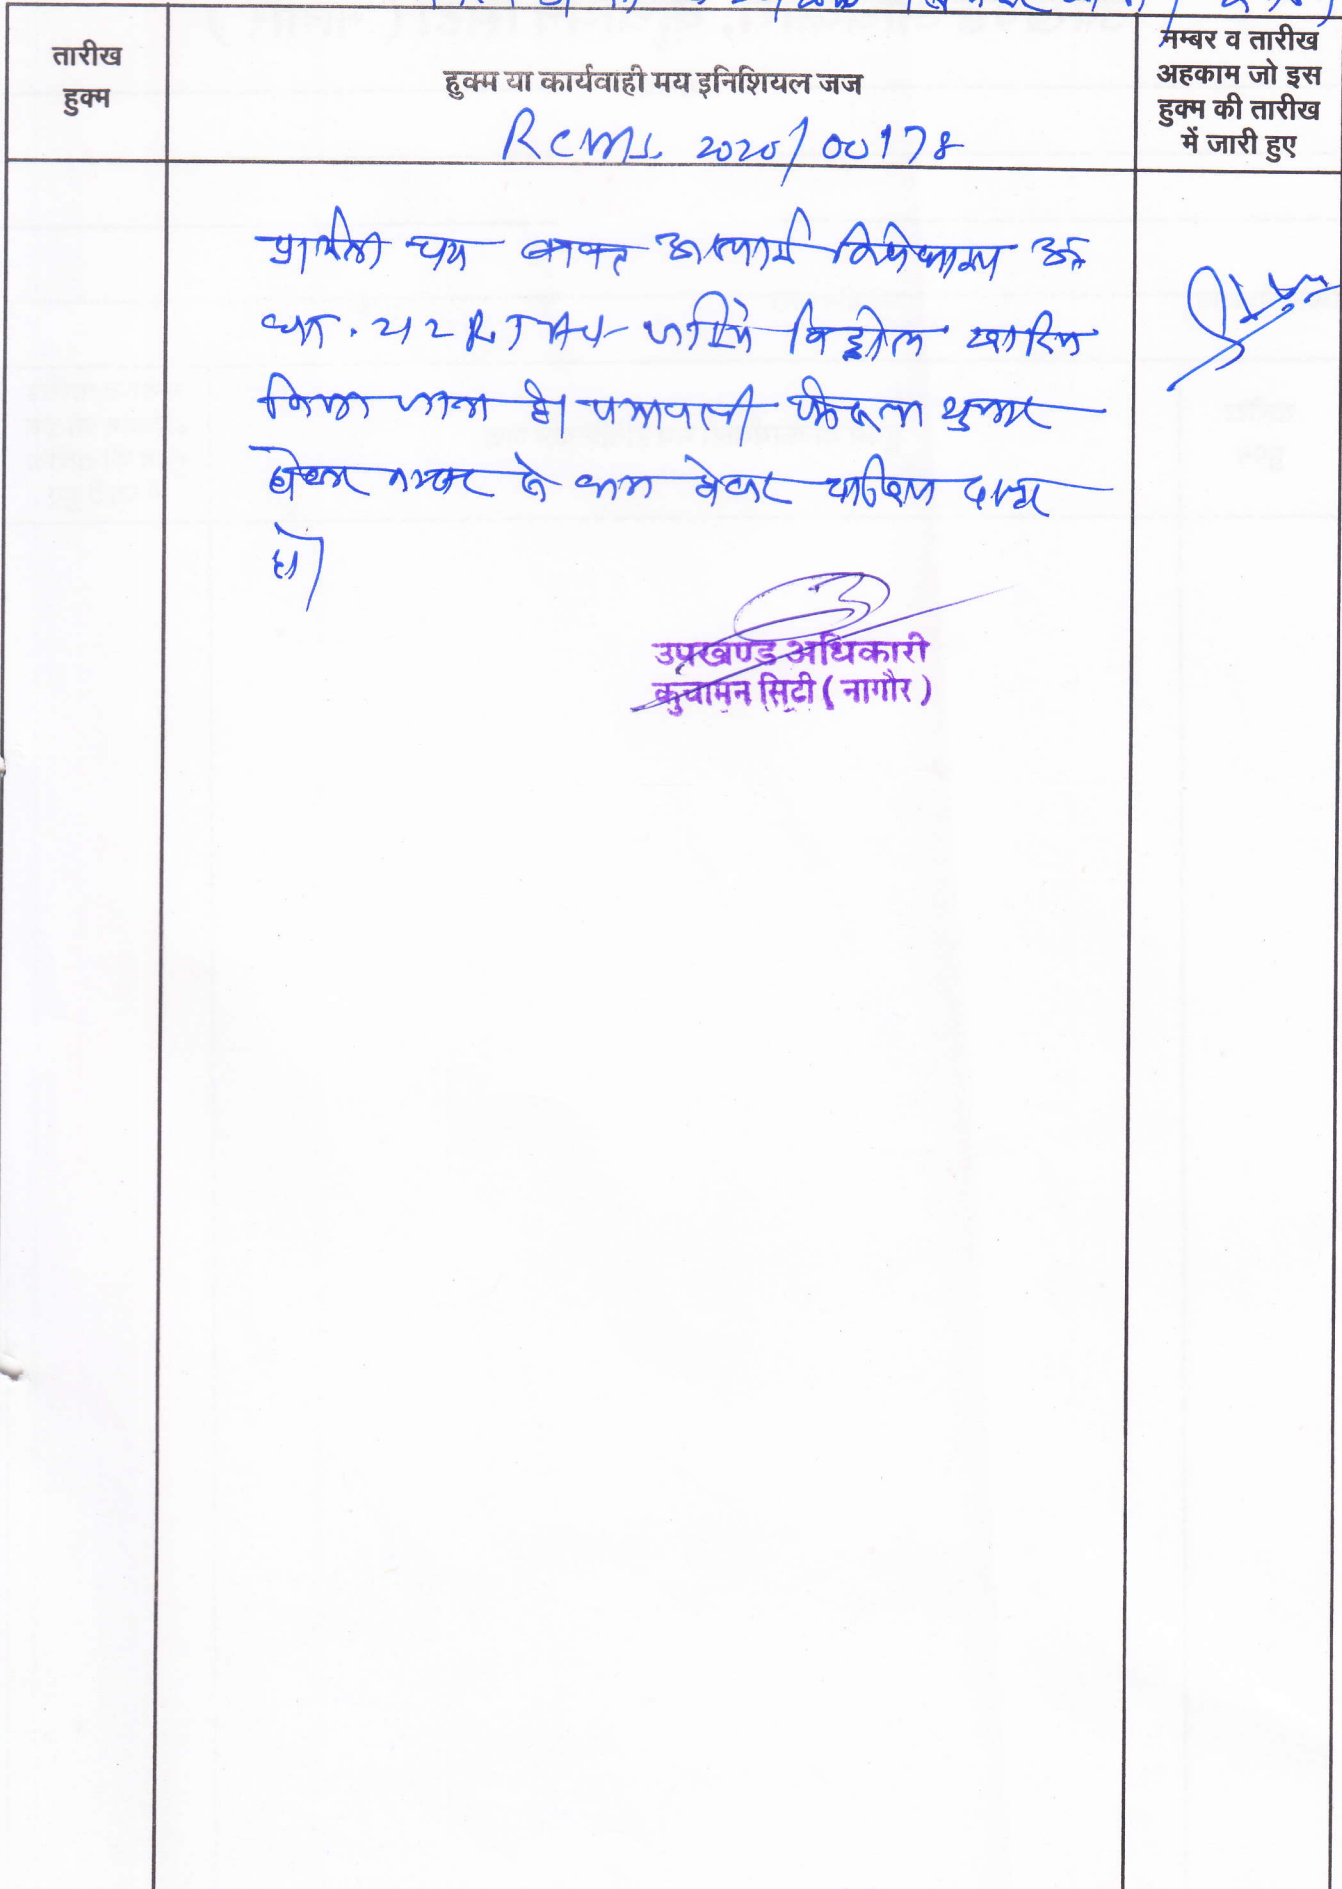 तारीख
हुक्म
हुक्म या कार्यवाही मय इनिशियल जज
नम्बर व तारीख
अहकाम जो इस
हुक्म की तारीख
में जारी हुए
RCMS 2020/00178
प्रार्थना पत्र बाबत अस्थाई निषेधाज्ञा अ
धारा. 212 R.T Act जरिये विड्रोल खारिज
किया जाता है। पत्रावली फैसला शुमार
होकर नम्बर से कम होकर दाखिल दफ्तर
हो।
उपखण्ड अधिकारी
कुचामन सिटी ( नागौर )